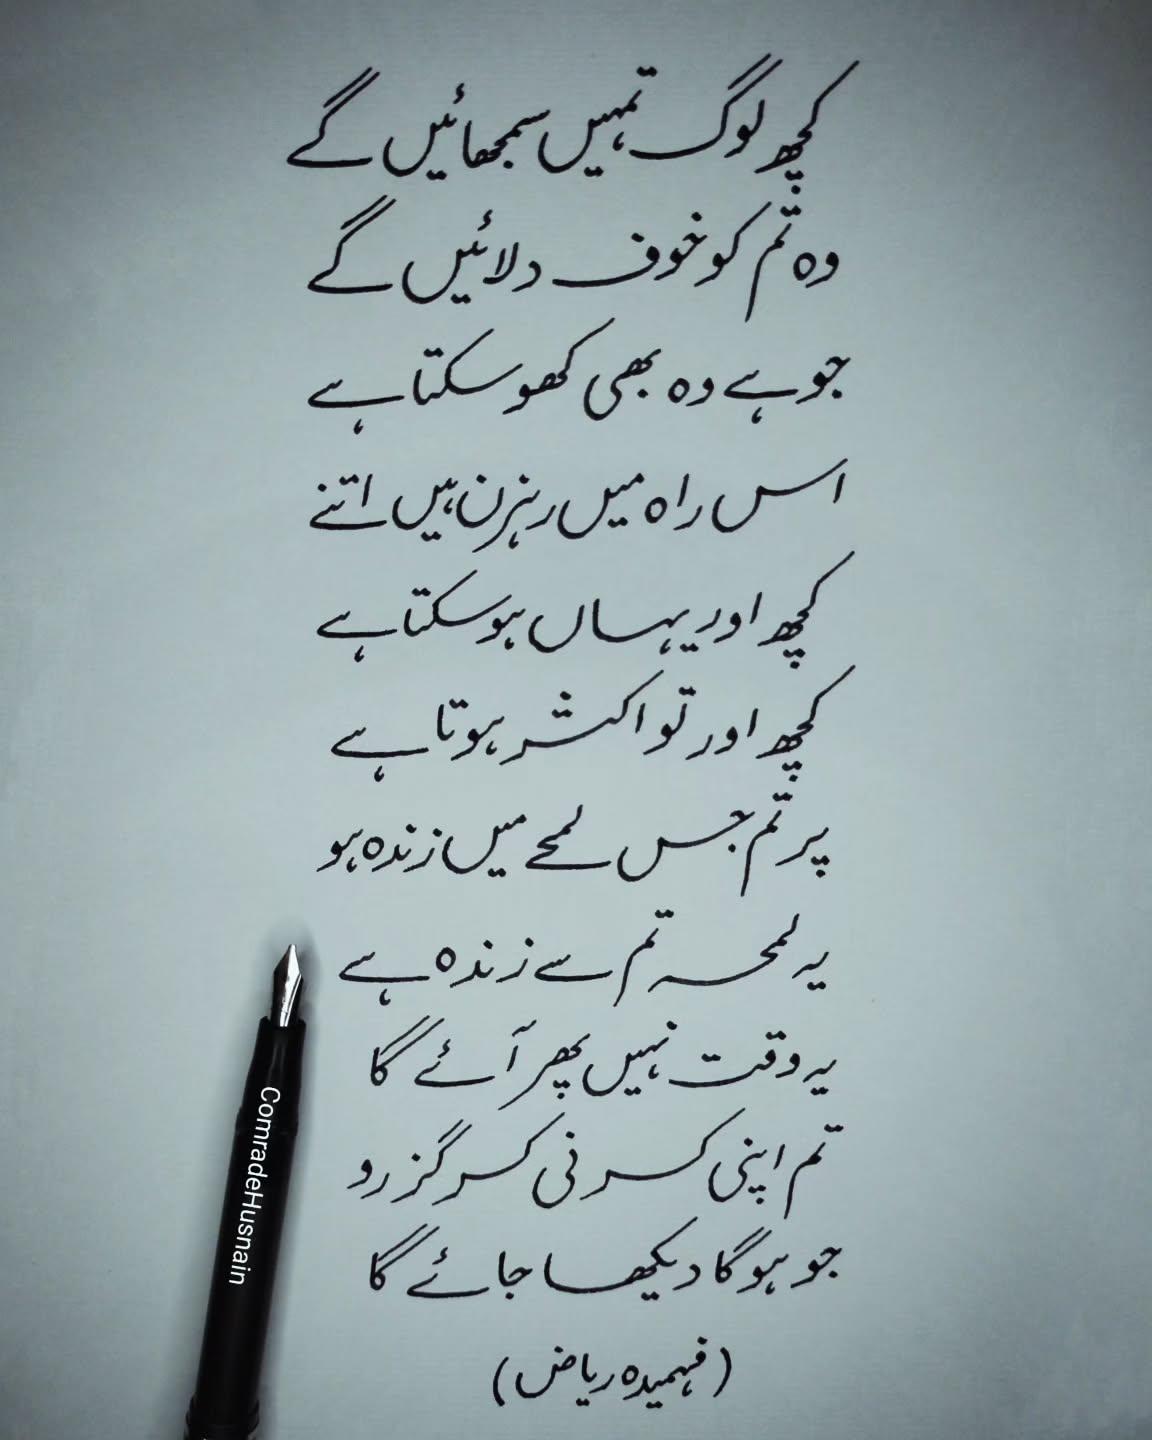 کچھ لوگ تمہیں سمجھائیں گے
وہ تم کو خوف دلائیں گے
جو ہے وہ بھی کھو سکتا ہے
اس راہ میں رہزن ہیں اتنے
کچھ اور یہاں ہو سکتا ہے
کچھ اور تو اکثر ہوتا ہے
پر تم جس لمحے میں زندہ ہو
یہ لمحہ تم سے زندہ ہے
یہ وقت نہیں پھر آئے گا
تم اپنی کرنی کر گزرو
جو ہوگا دیکھا جائے گا
(فہمیدہ ریاض)
ComradeHusnain